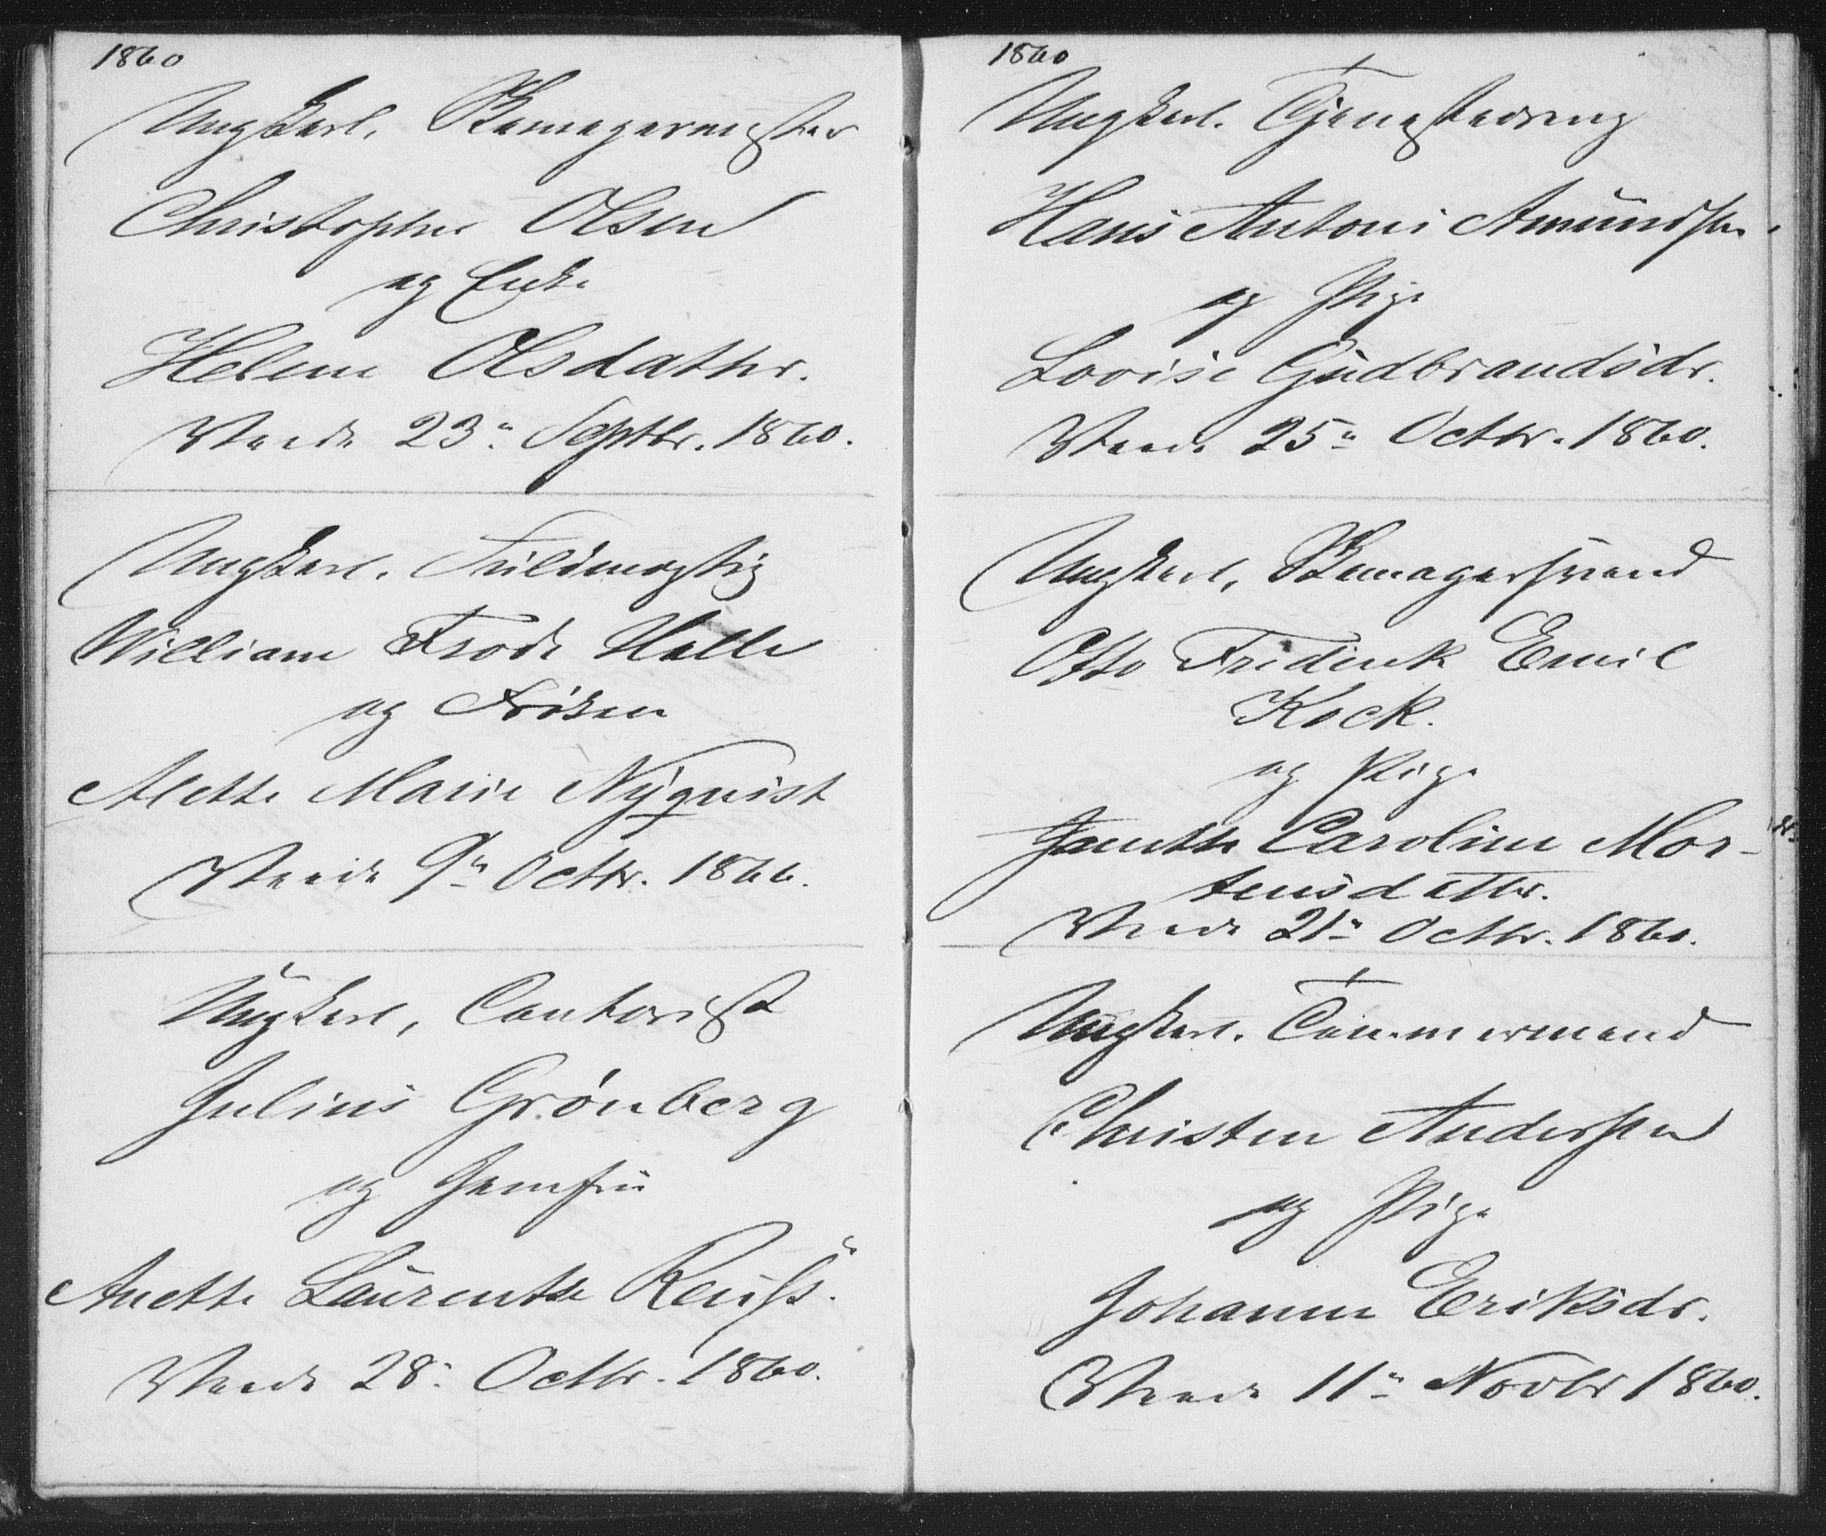 1860
Ungkarl, Bemagermester
Christopher Olsen
og Enke
Helene Olsdatter.
Viede 23de Septbr. 1860.
Ungkarl, Fuldmægtig
William Frode Halle
og Frøken
Alette Marie Nyquist
Viede 9de Octbr. 1860.
Ungkarl, Contorist
Julius Grönberg
og Jomfru
Anette Laurentze Reuss.
Viede 28. Octbr. 1860.
1860
Ungkarl. Tjenestedreng
Hans Antoni Amundsen
og Pige
Lovise Gudbrandsdr.
Viede 25de Octbr. 1860.
Ungkarl, Bemagersvend
Otto Frederik Emil
Kock.
og Pige
Caroline Mor-
tensdatter.
Viede 21de Octbr. 1860.
Ungkarl. Tömmermand
Christen Anderssen
og Pige
Johanne Eriksdr.
Viede 11te Novbr 1860.